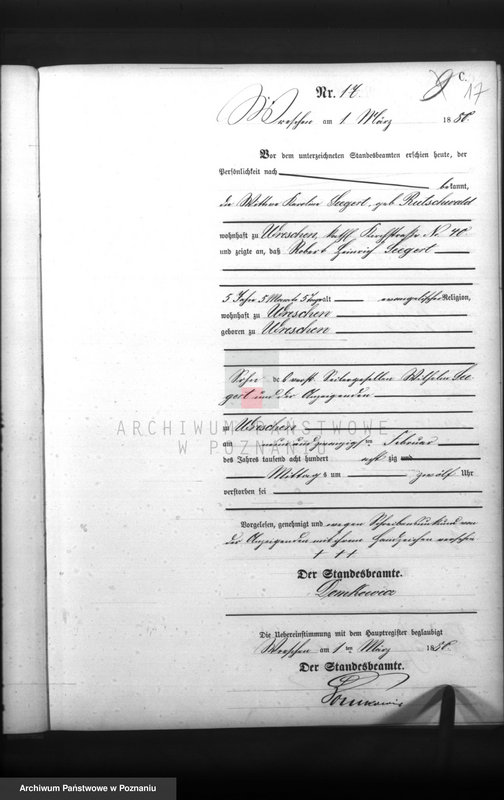 C.
9 17
Nr. 17.
Wreschen am 1 März 1880.
Vor dem unterzeichneten Standesbeamten erschien heute, der
Persönlichkeit nach
bekannt,
die Wittwe Karoline Seegert, geb.
wohnhaft zu Wreschen, Kirchstraße No 40
und zeigte an, daß Robert Heinrich Seegert
5 Jahre 5 Monate 5 Tage alt evangelischer Religion,
wohnhaft zu Wreschen
geboren zu Wreschen
Sohn des verst. Seilergesellen Wilhelm See
gert und der Anzeigenden
zu Wreschen
am neun und zwanzigsten Februar
des Jahres tausend acht hundert acht zig und
Mittags um zwölf Uhr
verstorben sei
Vorgelesen, genehmigt und wegen Schreibensunkunde von
der Anzeigenden mit ihrem Handzeichen versehen
† † †
Der Standesbeamte.
Die Uebereinstimmung mit dem Hauptregister beglaubigt
Wreschen am 1 ten März 1880.
Der Standesbeamte.
ARCHIWUM PAŃSTWOWE
W POZNANIU
Archiwum Państwowe w Poznaniu